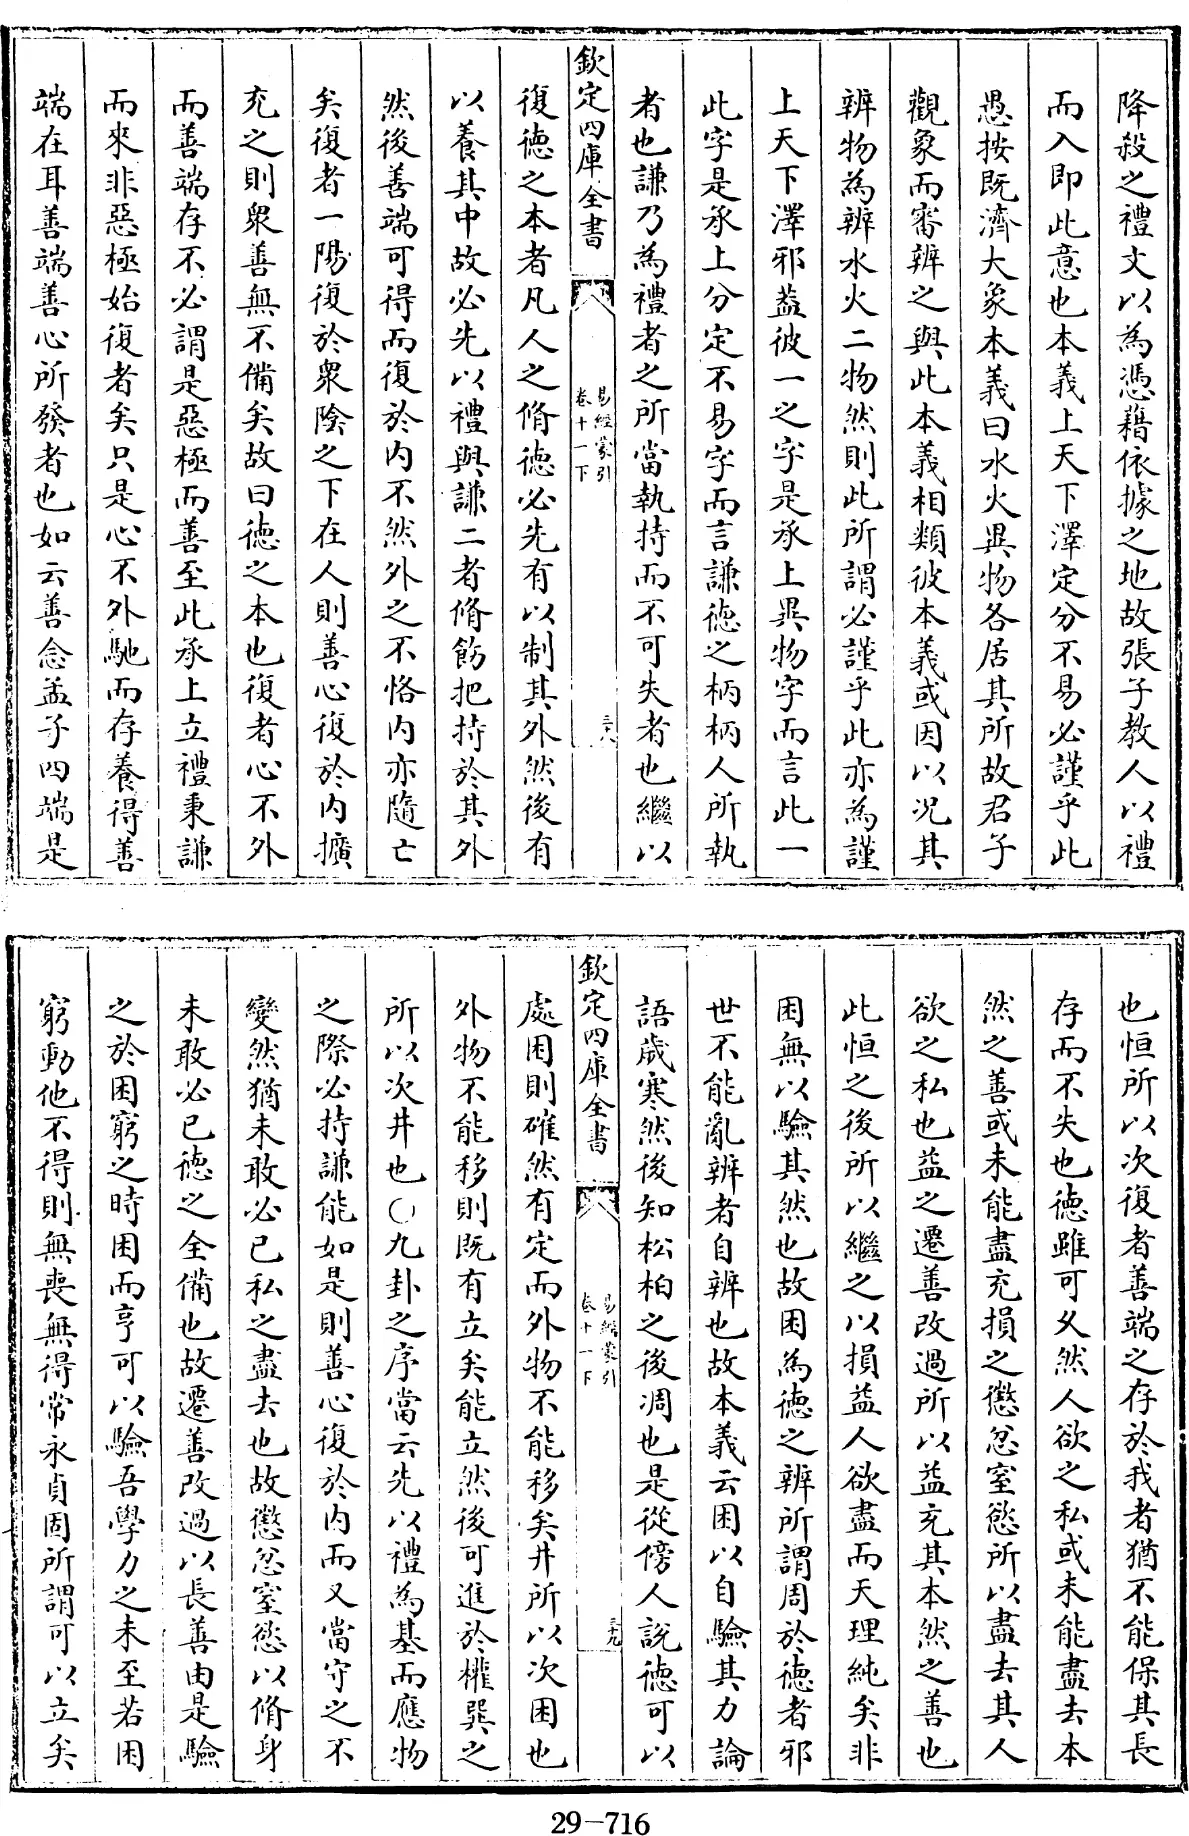 降殺之禮文以為憑藉依據之地故張子教人以禮
而入即此意也本義上天下澤定分不易必謹乎此
愚按既濟大象本義曰水火異物各居其所故君子
觀象而審辨之與此本義相類彼本義或因以况其
辨物為辨水火二物然則此所謂必謹乎此亦為謹
上天下澤邪葢彼一之字是承上異物字而言此一
此字是承上分定不易字而言謙德之柄柄人所執
者也謙乃為禮者之所當執持而不可失者也繼以
欽定四庫全書
易經蒙引
卷十一下
三十八
復德之本者凡人之脩德必先有以制其外然後有
以養其中故必先以禮與謙二者脩飭把持於其外
然後善端可得而復於内不然外之不恪内亦隨亡
矣復者一陽復於衆陰之下在人則善心復於内擴
充之則衆善無不備矣故曰德之本也復者心不外
而善端存不必謂是惡極而善至此承上立禮秉謙
而來非惡極始復者矣只是心不外馳而存養得善
端在耳善端善心所發者也如云善念孟子四端是
也恒所以次復者善端之存於我者猶不能保其長
存而不失也德雖可久然人欲之私或未能盡去本
然之善或未能盡充損之懲忿窒慾所以盡去其人
欲之私也益之遷善改過所以益充其本然之善也
此恒之後所以繼之以損益人欲盡而天理純矣非
困無以驗其然也故困為德之辨所謂周於德者邪
世不能亂辨者自辨也故本義云困以自驗其力論
語歲寒然後知松柏之後凋也是從傍人說德可以
欽定四庫全書
易經蒙引
卷十一下
三十九
處困則確然有定而外物不能移矣井所以次困也
外物不能移則既有立矣能立然後可進於權巽之
所以次井也○九卦之序當云先以禮為基而應物
之際必持謙能如是則善心復於内而又當守之不
變然猶未敢必已私之盡去也故懲忿窒慾以脩身
未敢必已德之全備也故遷善改過以長善由是驗
之於困窮之時困而亨可以驗吾學力之未至若困
窮動他不得則無喪無得常永貞固所謂可以立矣
29-716